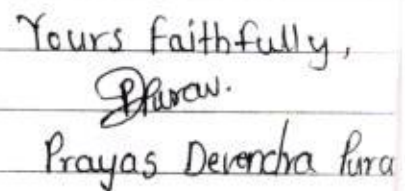 Yours faithfully,
Prayas Devendra Pura